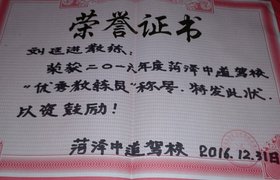 荣誉证书
刘廷进教练:
荣获二〇一六年度菏泽中道驾校
“优秀教练员”称号.特发此状.
以资鼓励!
菏泽中道驾校 2016.12.31日